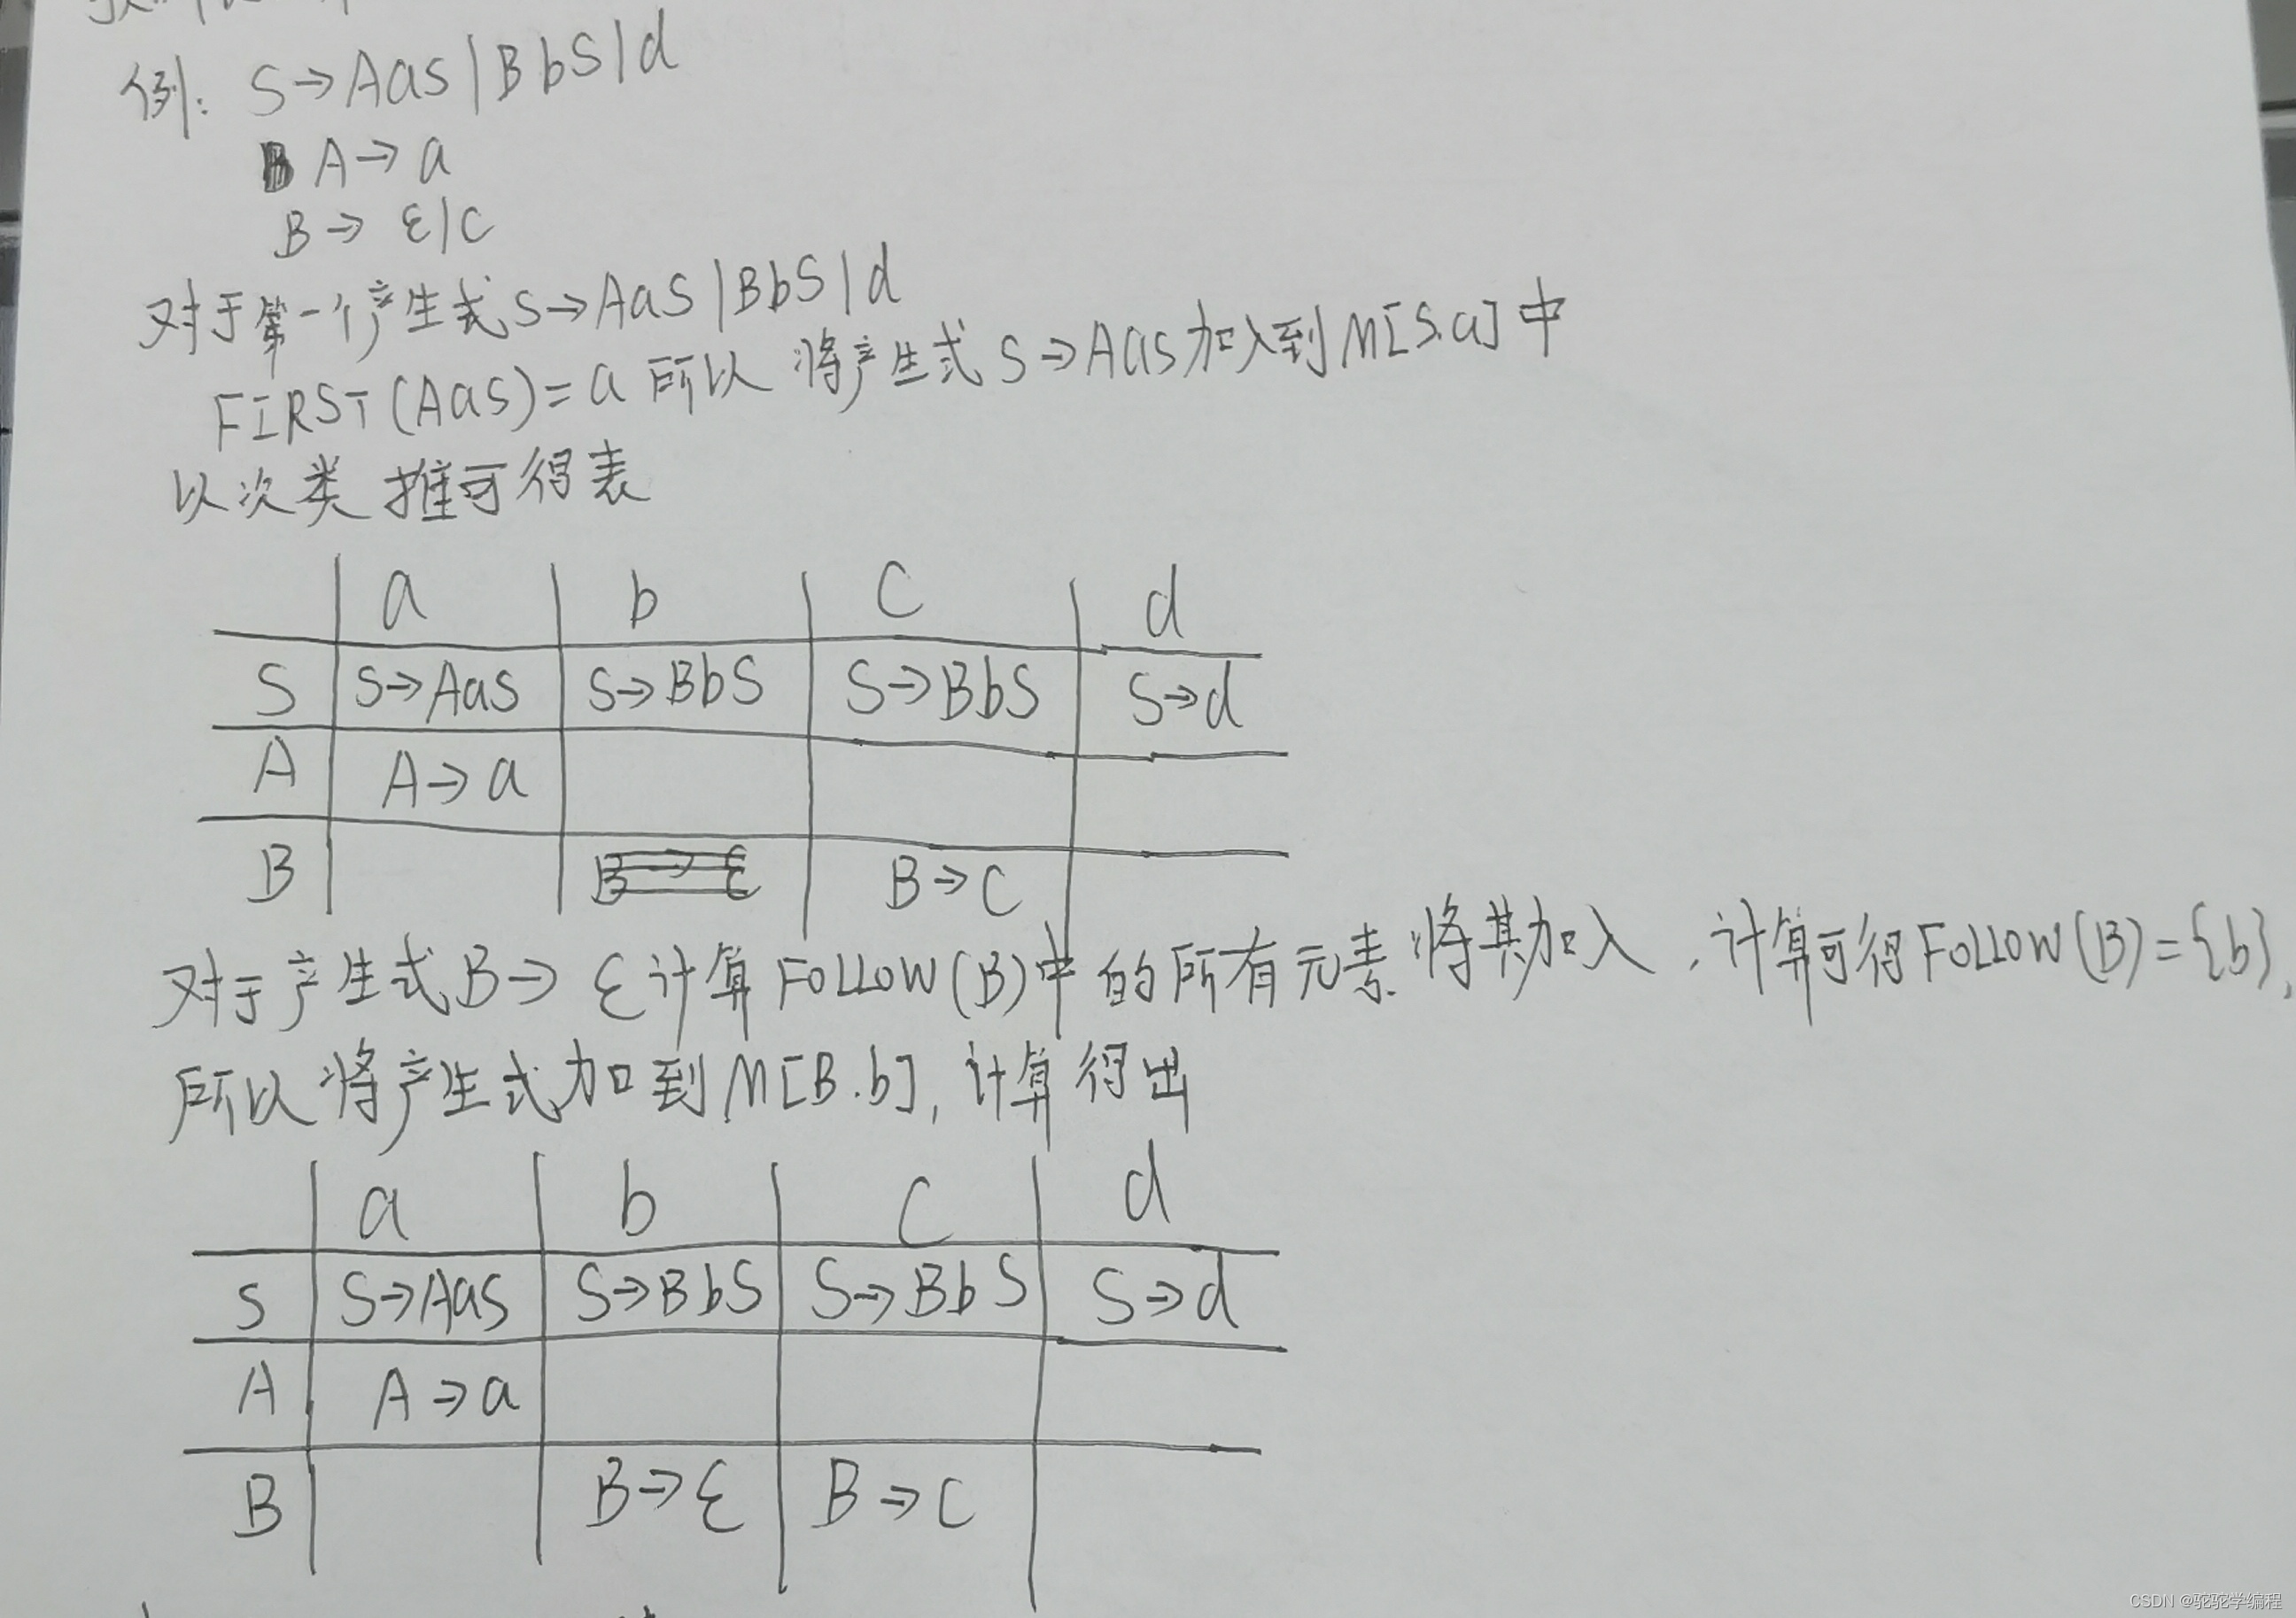 例: S→AaS|BbS|d
A→a
B→ε|c
对于第一个产生式S→AaS|BbS|d
FIRST(AaS)=a 所以 将产生式 S→AaS加入到M[S.a]中
以次类推可得表
a b c d
S S→AaS S→BbS S→BbS S→d
A A→a
B B→ε B→c
对于产生式B→ε计算FOLLOW(B)中的所有元素.将其加入,计算可得FOLLOW(B)={b},
所以将产生式加到M[B.b],计算得出
a b c d
S S→AaS S→BbS S→BbS S→d
A A→a
B B→ε B→c
CSDN @驼驼学编程